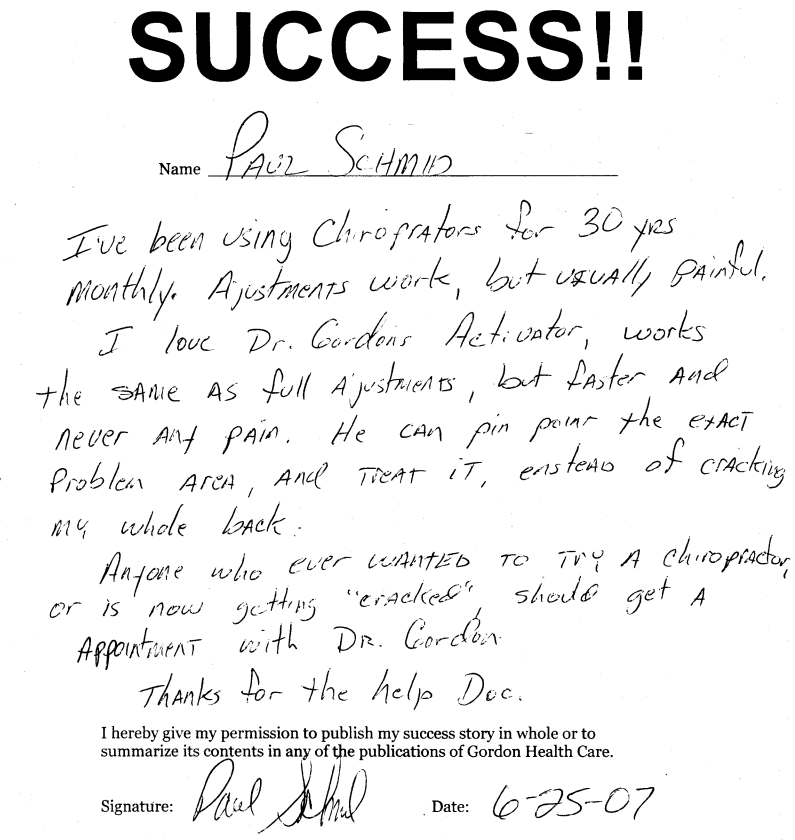 SUCCESS!!
Name PAUL SCHMID
I've been using Chiroprators for 30 yrs
monthly. Ajustments work, but usually painful.
I love Dr. Gordons Activator, works
the same as full Ajustments, but faster and
never any pain. He can pin point the exact
Problem area, and treat it, enstead of cracking
my whole back.
Anyone who ever wanted to try a chiropractor,
or is now getting "cracked", should get a
Appointment with Dr. Gordon
Thanks for the help Doc.
I hereby give my permission to publish my success story in whole or to
summarize its contents in any of the publications of Gordon Health Care.
Signature: Paul Schmid Date: 6-25-07